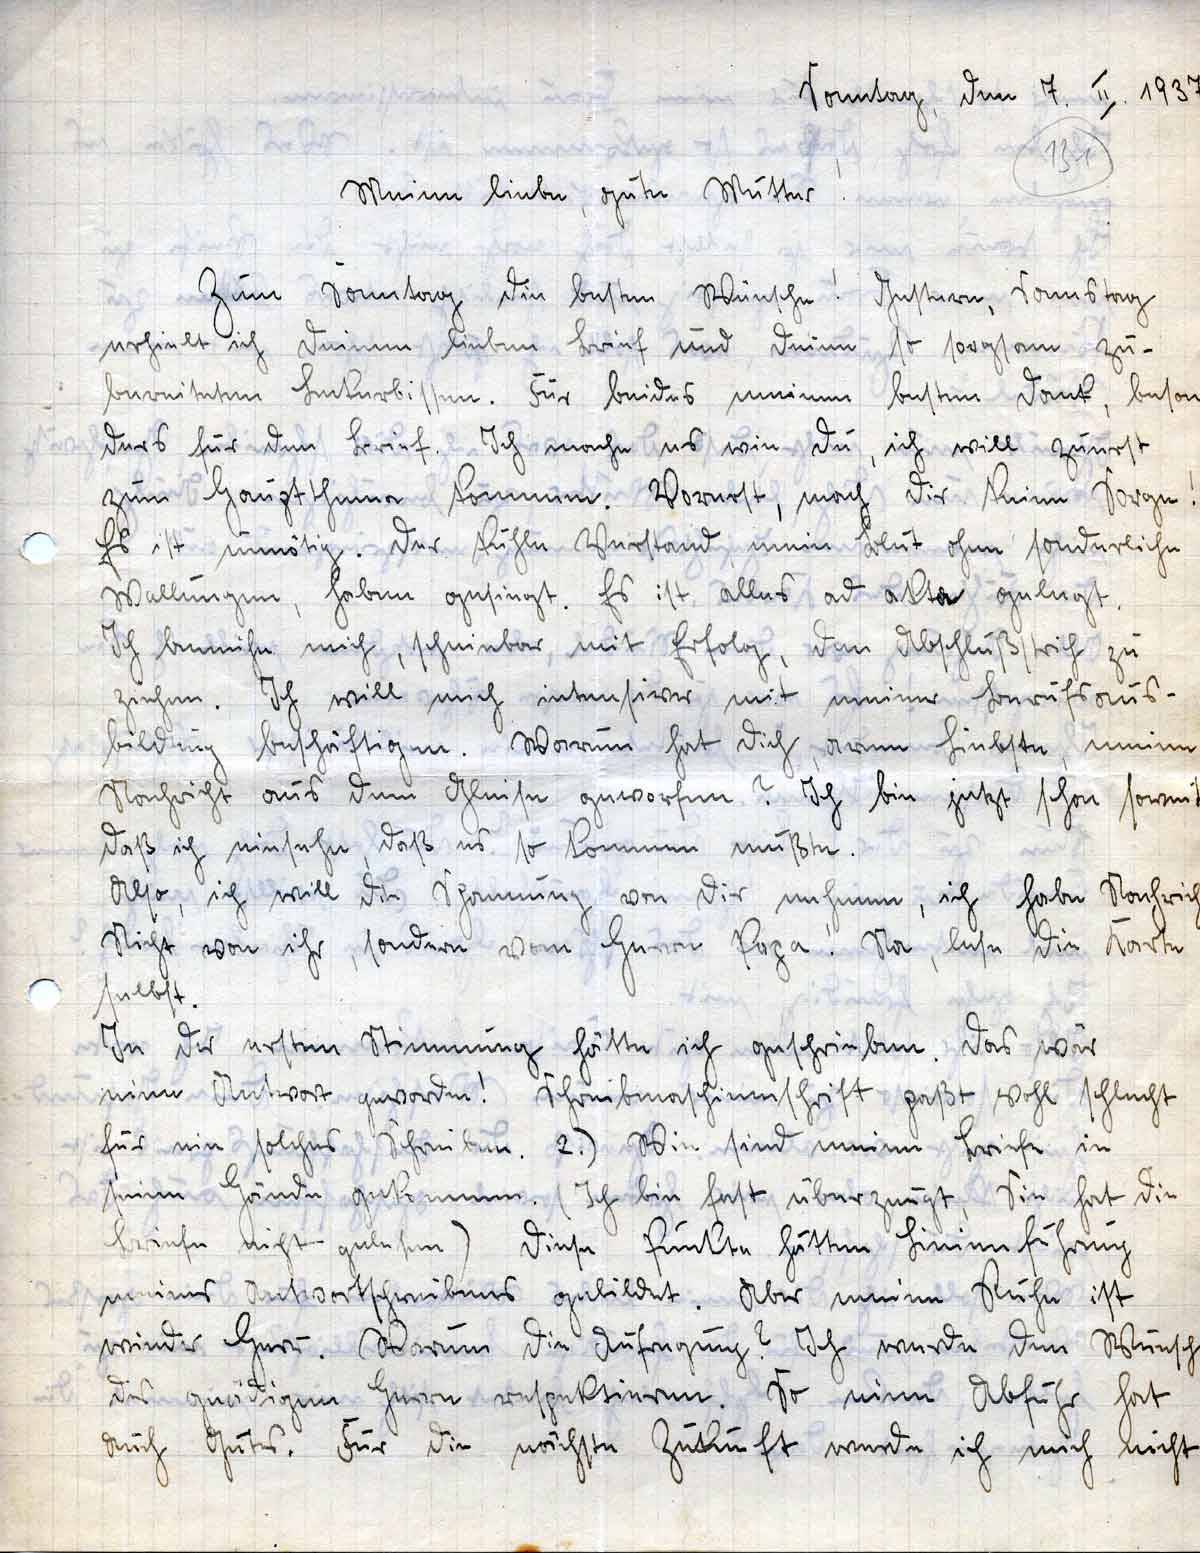 Sonntag, den 7. II. 1937
131
Meine liebe, gute Mutter!
Zum Sonntag die besten Wünsche! Gestern, Samstag
erhielt ich deinen lieben Brief und deine so sorgsam zu-
bereiteten Leckerbissen. Für beides meinen besten Dank, beson
ders für den Brief. Ich mache es wie du, ich will zuerst
zum Hauptthema kommen. Vorerst, mach dir keine Sorge!
Es ist unnötig. Der kühle Verstand, mein Blut ohne sonderliche
Wallungen, haben gesiegt. Es ist alles ad akta gelegt.
Ich bemühe mich, scheinbar mit Erfolg, den Abschlußstrich zu
ziehen. Ich will mich intensiver mit meiner Berufsaus-
bildung beschäftigen. Warum hat dich, arme Liebste, meine
Nachricht aus dem Gleise geworfen? Ich bin jetzt schon soweit
daß ich einsehe, daß es so kommen mußte.
Also, ich will die Spannung von dir nehmen, ich habe Nachrich
Nicht von ihr, sondern vom Herrn Papa! Na, lese die Karte
selbst.
In der ersten Stimmung hätte ich geschrieben. Das wär
eine Antwort geworden! Schreibmaschinenschrift paßt wohl schlecht
für ein solches Schreiben. 2.) Wie sind meine Briefe in
seine Hände gekommen. (Ich bin fast überzeugt, Sie hat die
Briefe nicht gelesen) Diese Punkte hätten Linienführung
meines Antwortschreibens gebildet. Aber meine Ruhe ist
wieder Herr. Warum die Aufregung? Ich werde den Wunsch
des gnädigen Herrn respektieren. So eine Abfuhr hat
auch Gutes. Für die nächste Zukunft werde ich mich nicht